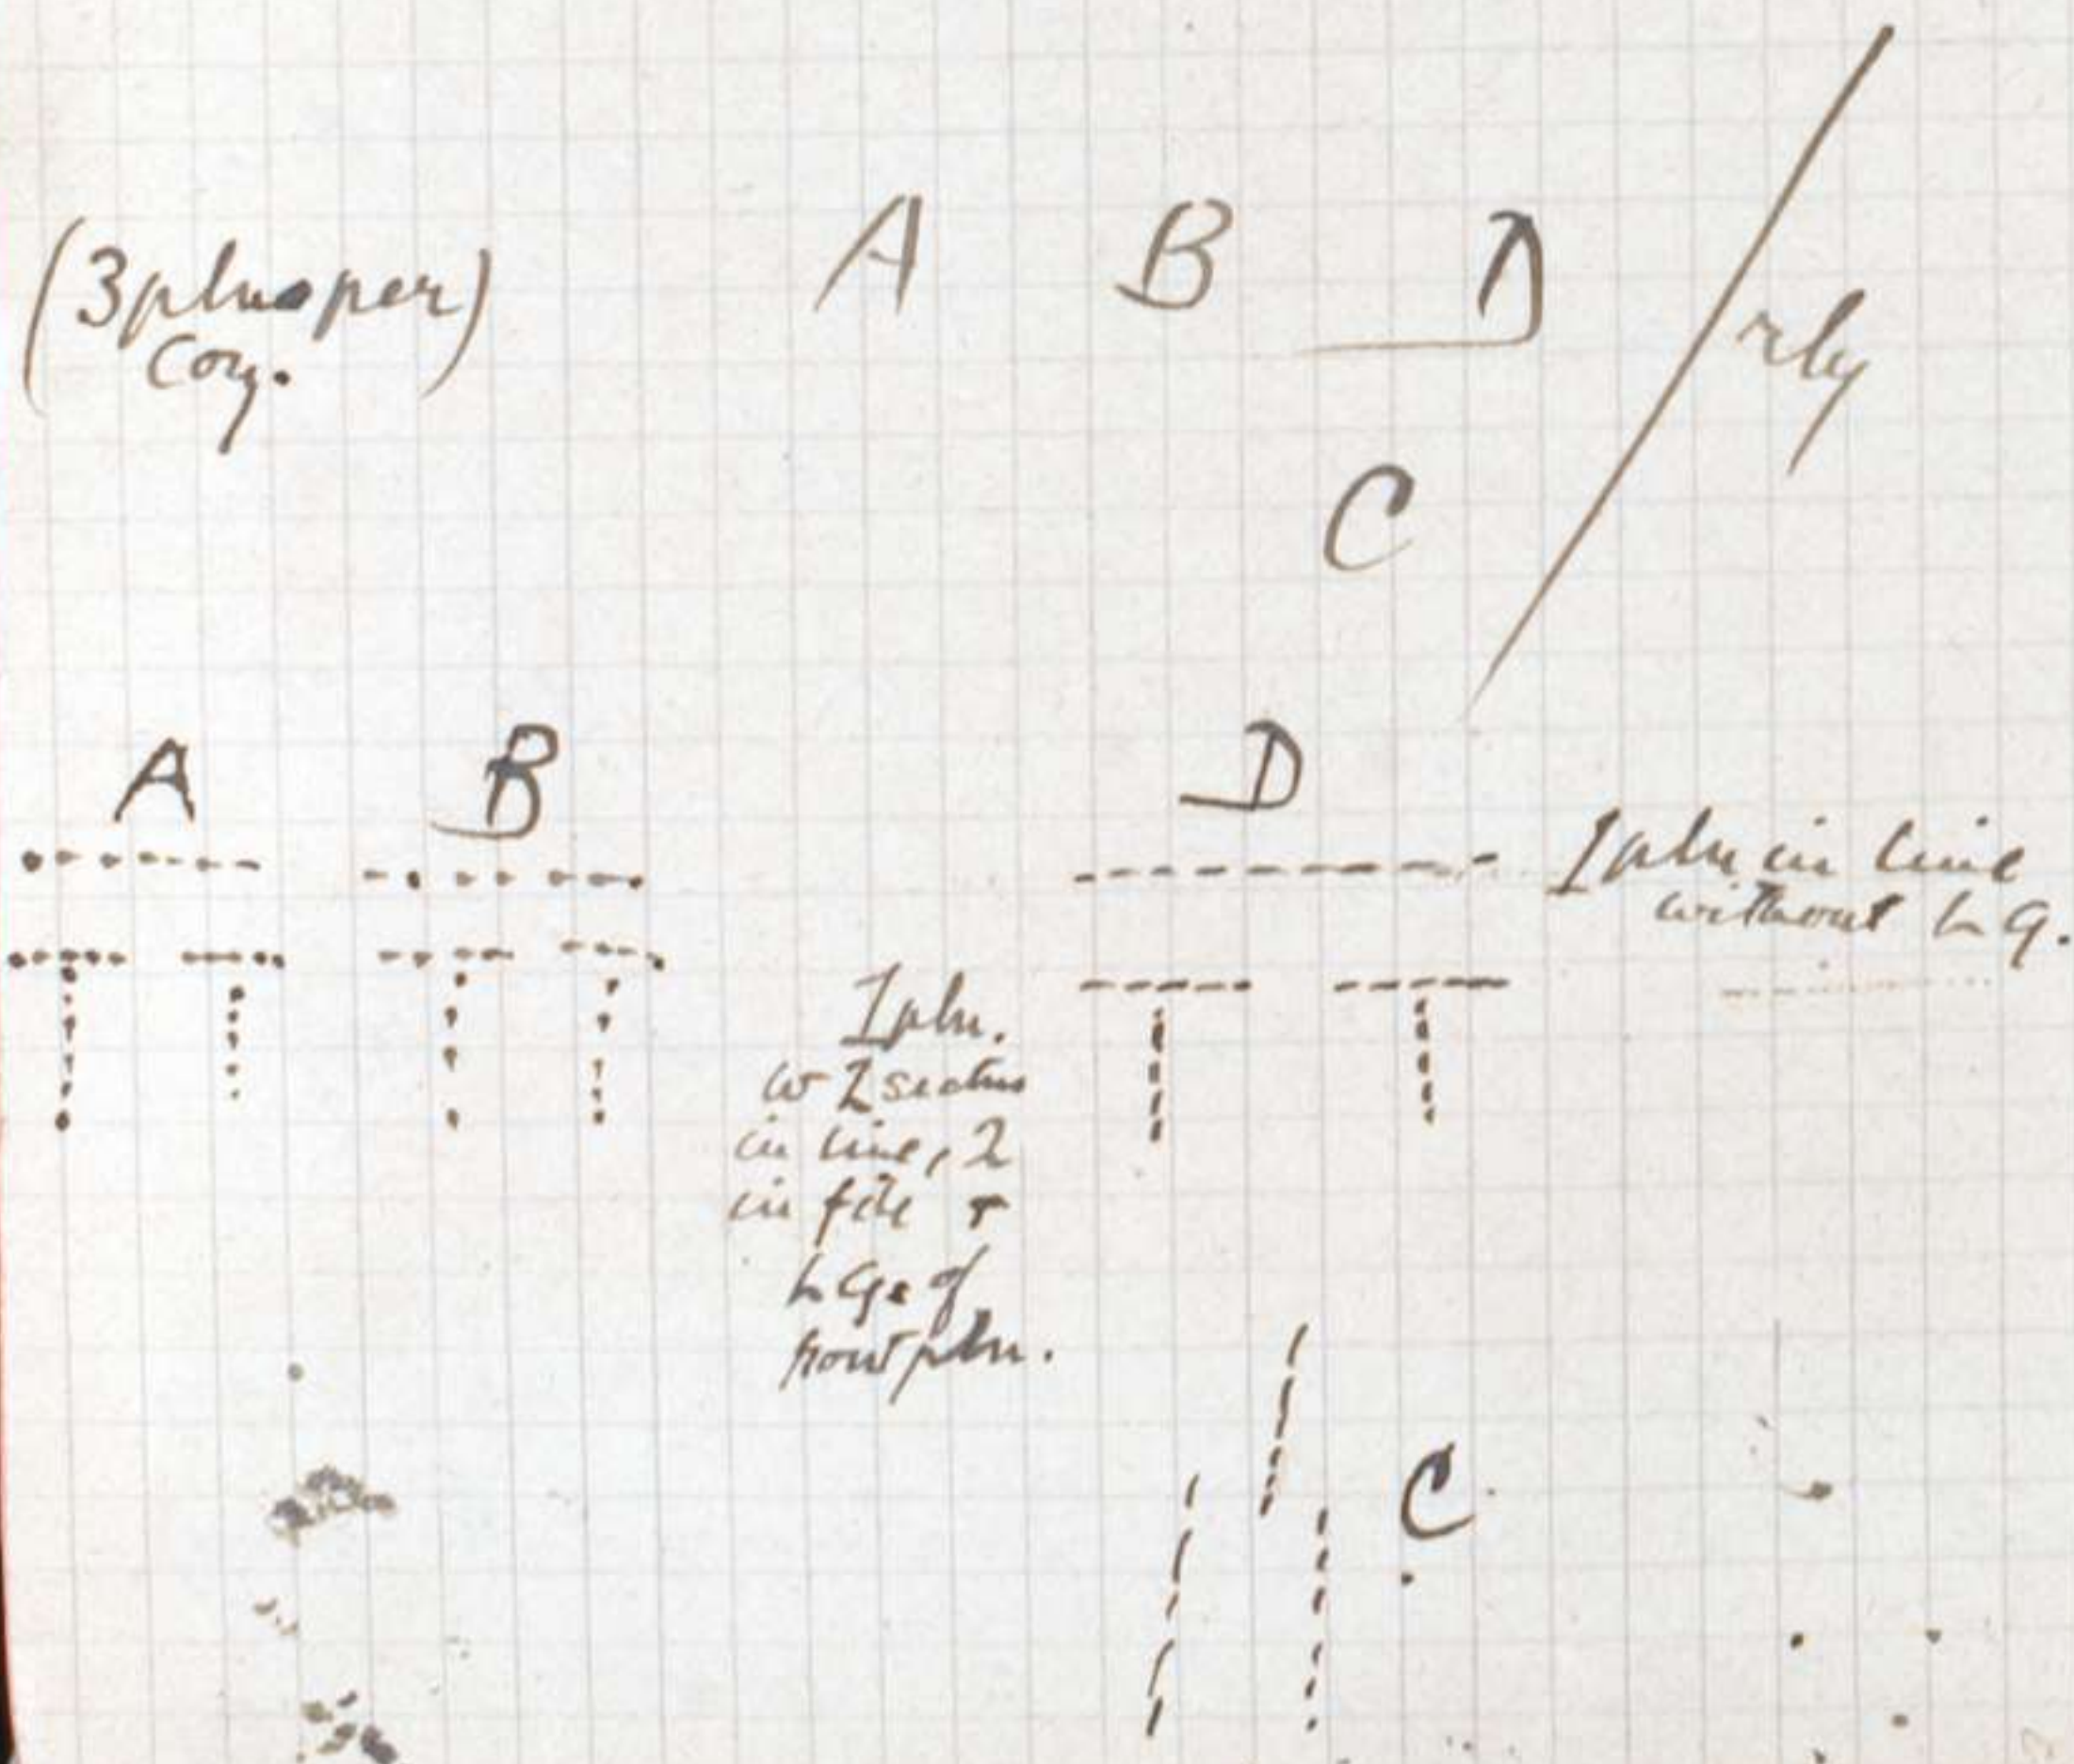 (3 plns per)
Coy.
A B D
rly
C
A B D
1 pln in line
without L G.
1 pln.
w 2 sectns
in line, 2
in file +
L Gs of
front pln.
C